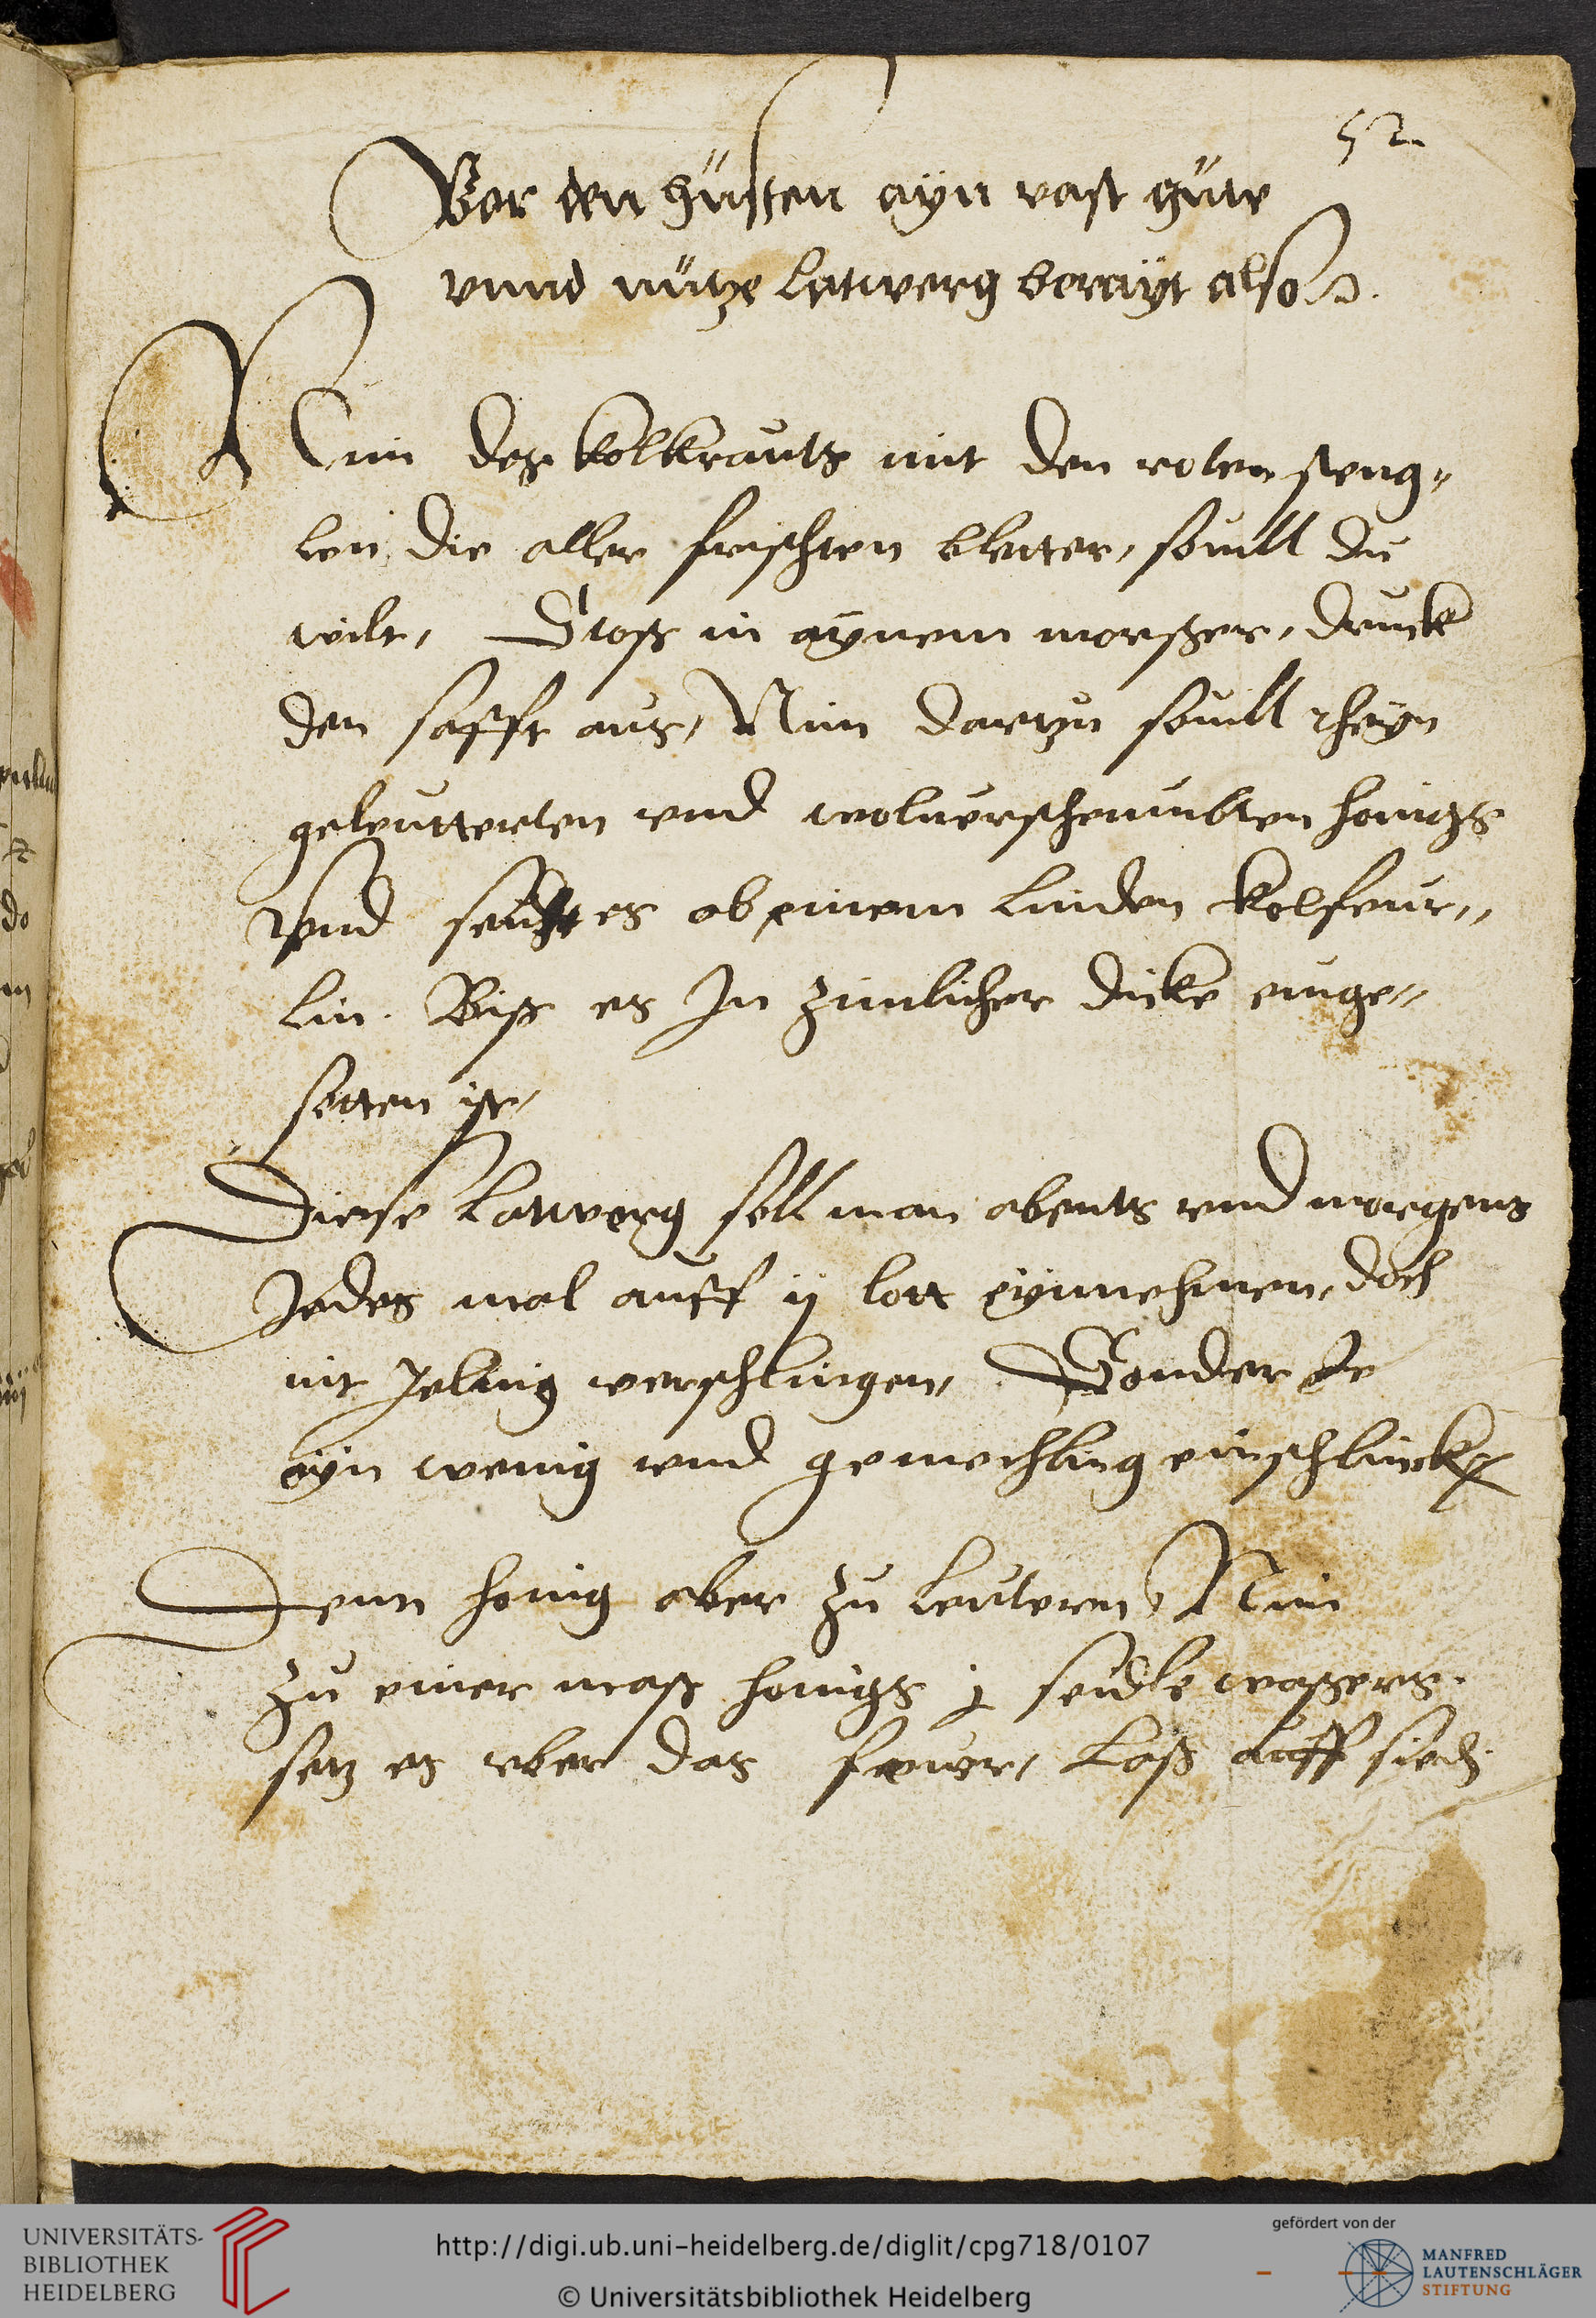 52.
Vor den hüsten aÿn vast güte
vnnd nütze latwerg berayt also
Nim des kolkrauts mit den roten steng„
len die aller frischten bletter, souill du
wilt, Stoß in aÿnem morßer, druck
den safft aus, Nim dartzu souill rheÿn
geleutterten vnd wolverscheumbten honigs
Vnd seudt es ob einem linden kolfeur„
lin. Biß es In zimlicher dicke einge„
sotten ist,
Diese latwerg soll man abents vnd morgens
Jedes mal auff ij lott eÿnnehmen, doch
nit Jeling verschlingen, Sonder
aÿn wenig vnd gemechling einschlinck
Denn honig aber zu leutern, Nim
zu einer maß honigs j seidle waßers.
setz es vber das fewer, laß auff sied.
UNIVERSITÄTS-
BIBLIOTHEK
HEIDELBERG
http://digi.ub.uni-heidelberg.de/diglit/cpg718/0107
© Universitätsbibliothek Heidelberg
gefördert von der
MANFRED
LAUTENSCHLÄGER
STIFTUNG